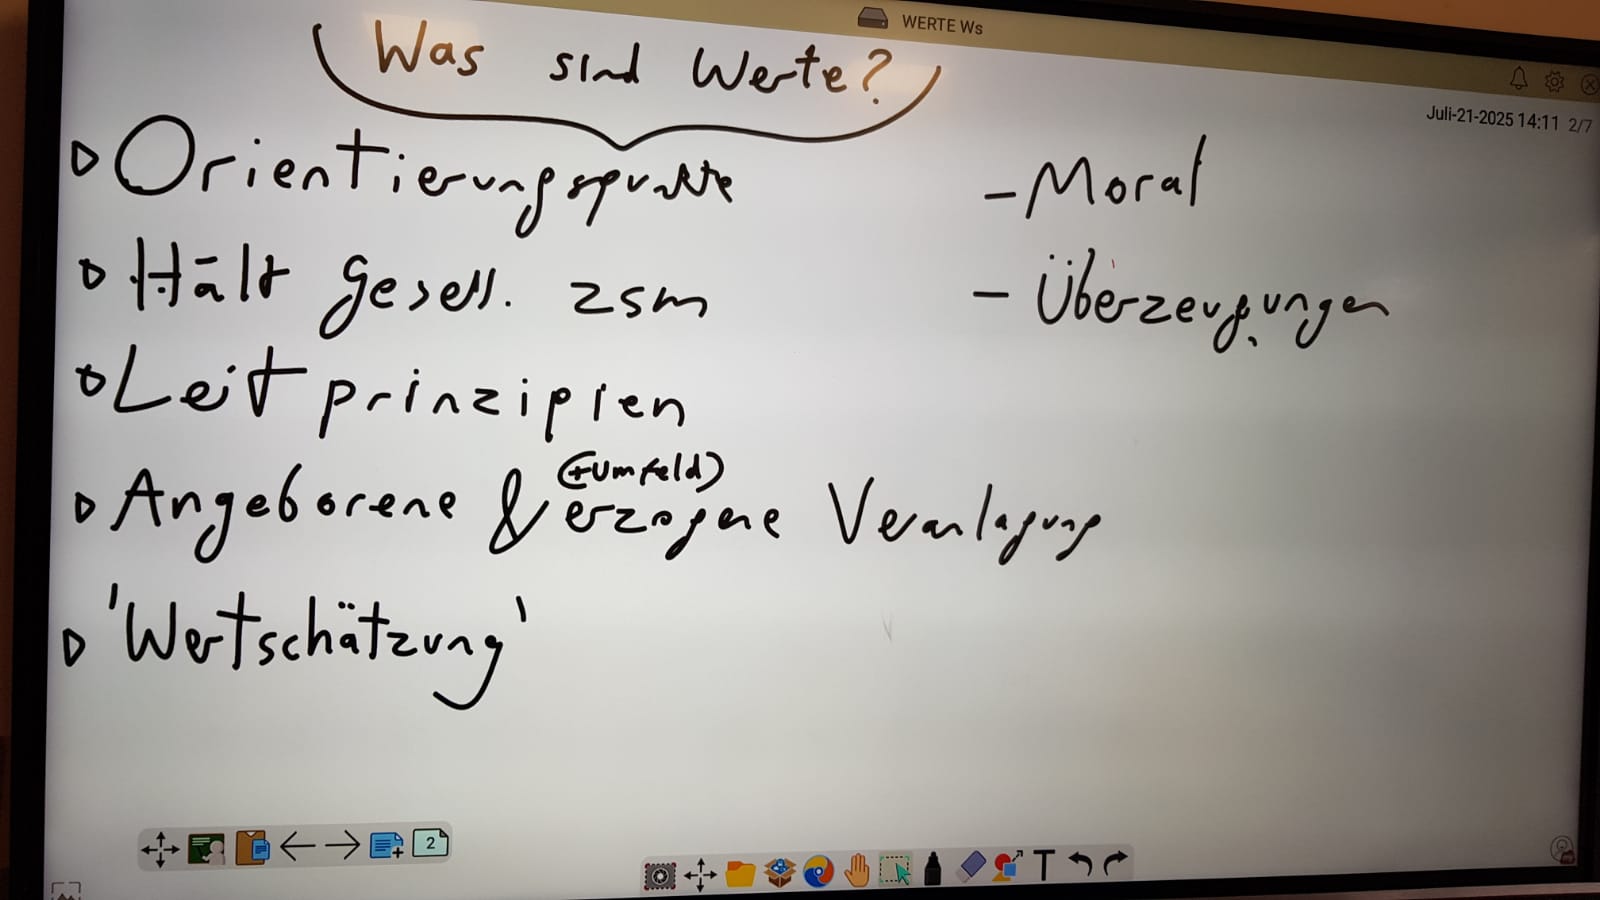 WERTE Ws
Juli-21-2025 14:11 2/7
Was sind Werte?
Orientierungspunkte
Hält gesell. zsm
Leitprinzipien
(+Umfeld)
Angeborene & erzogene Veranlagung
'Wertschätzung'
- Moral
- Überzeugungen
2
T